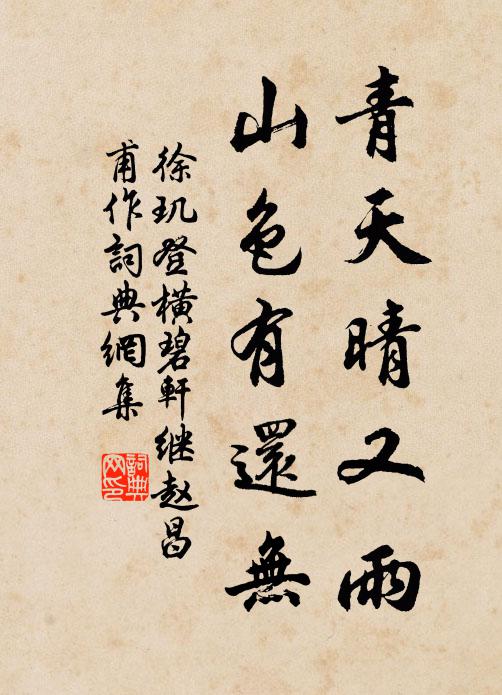 青天晴又雨
山色有還無
徐玑登橫碧軒继赵昌
甫作詞典網集
詞典
网印